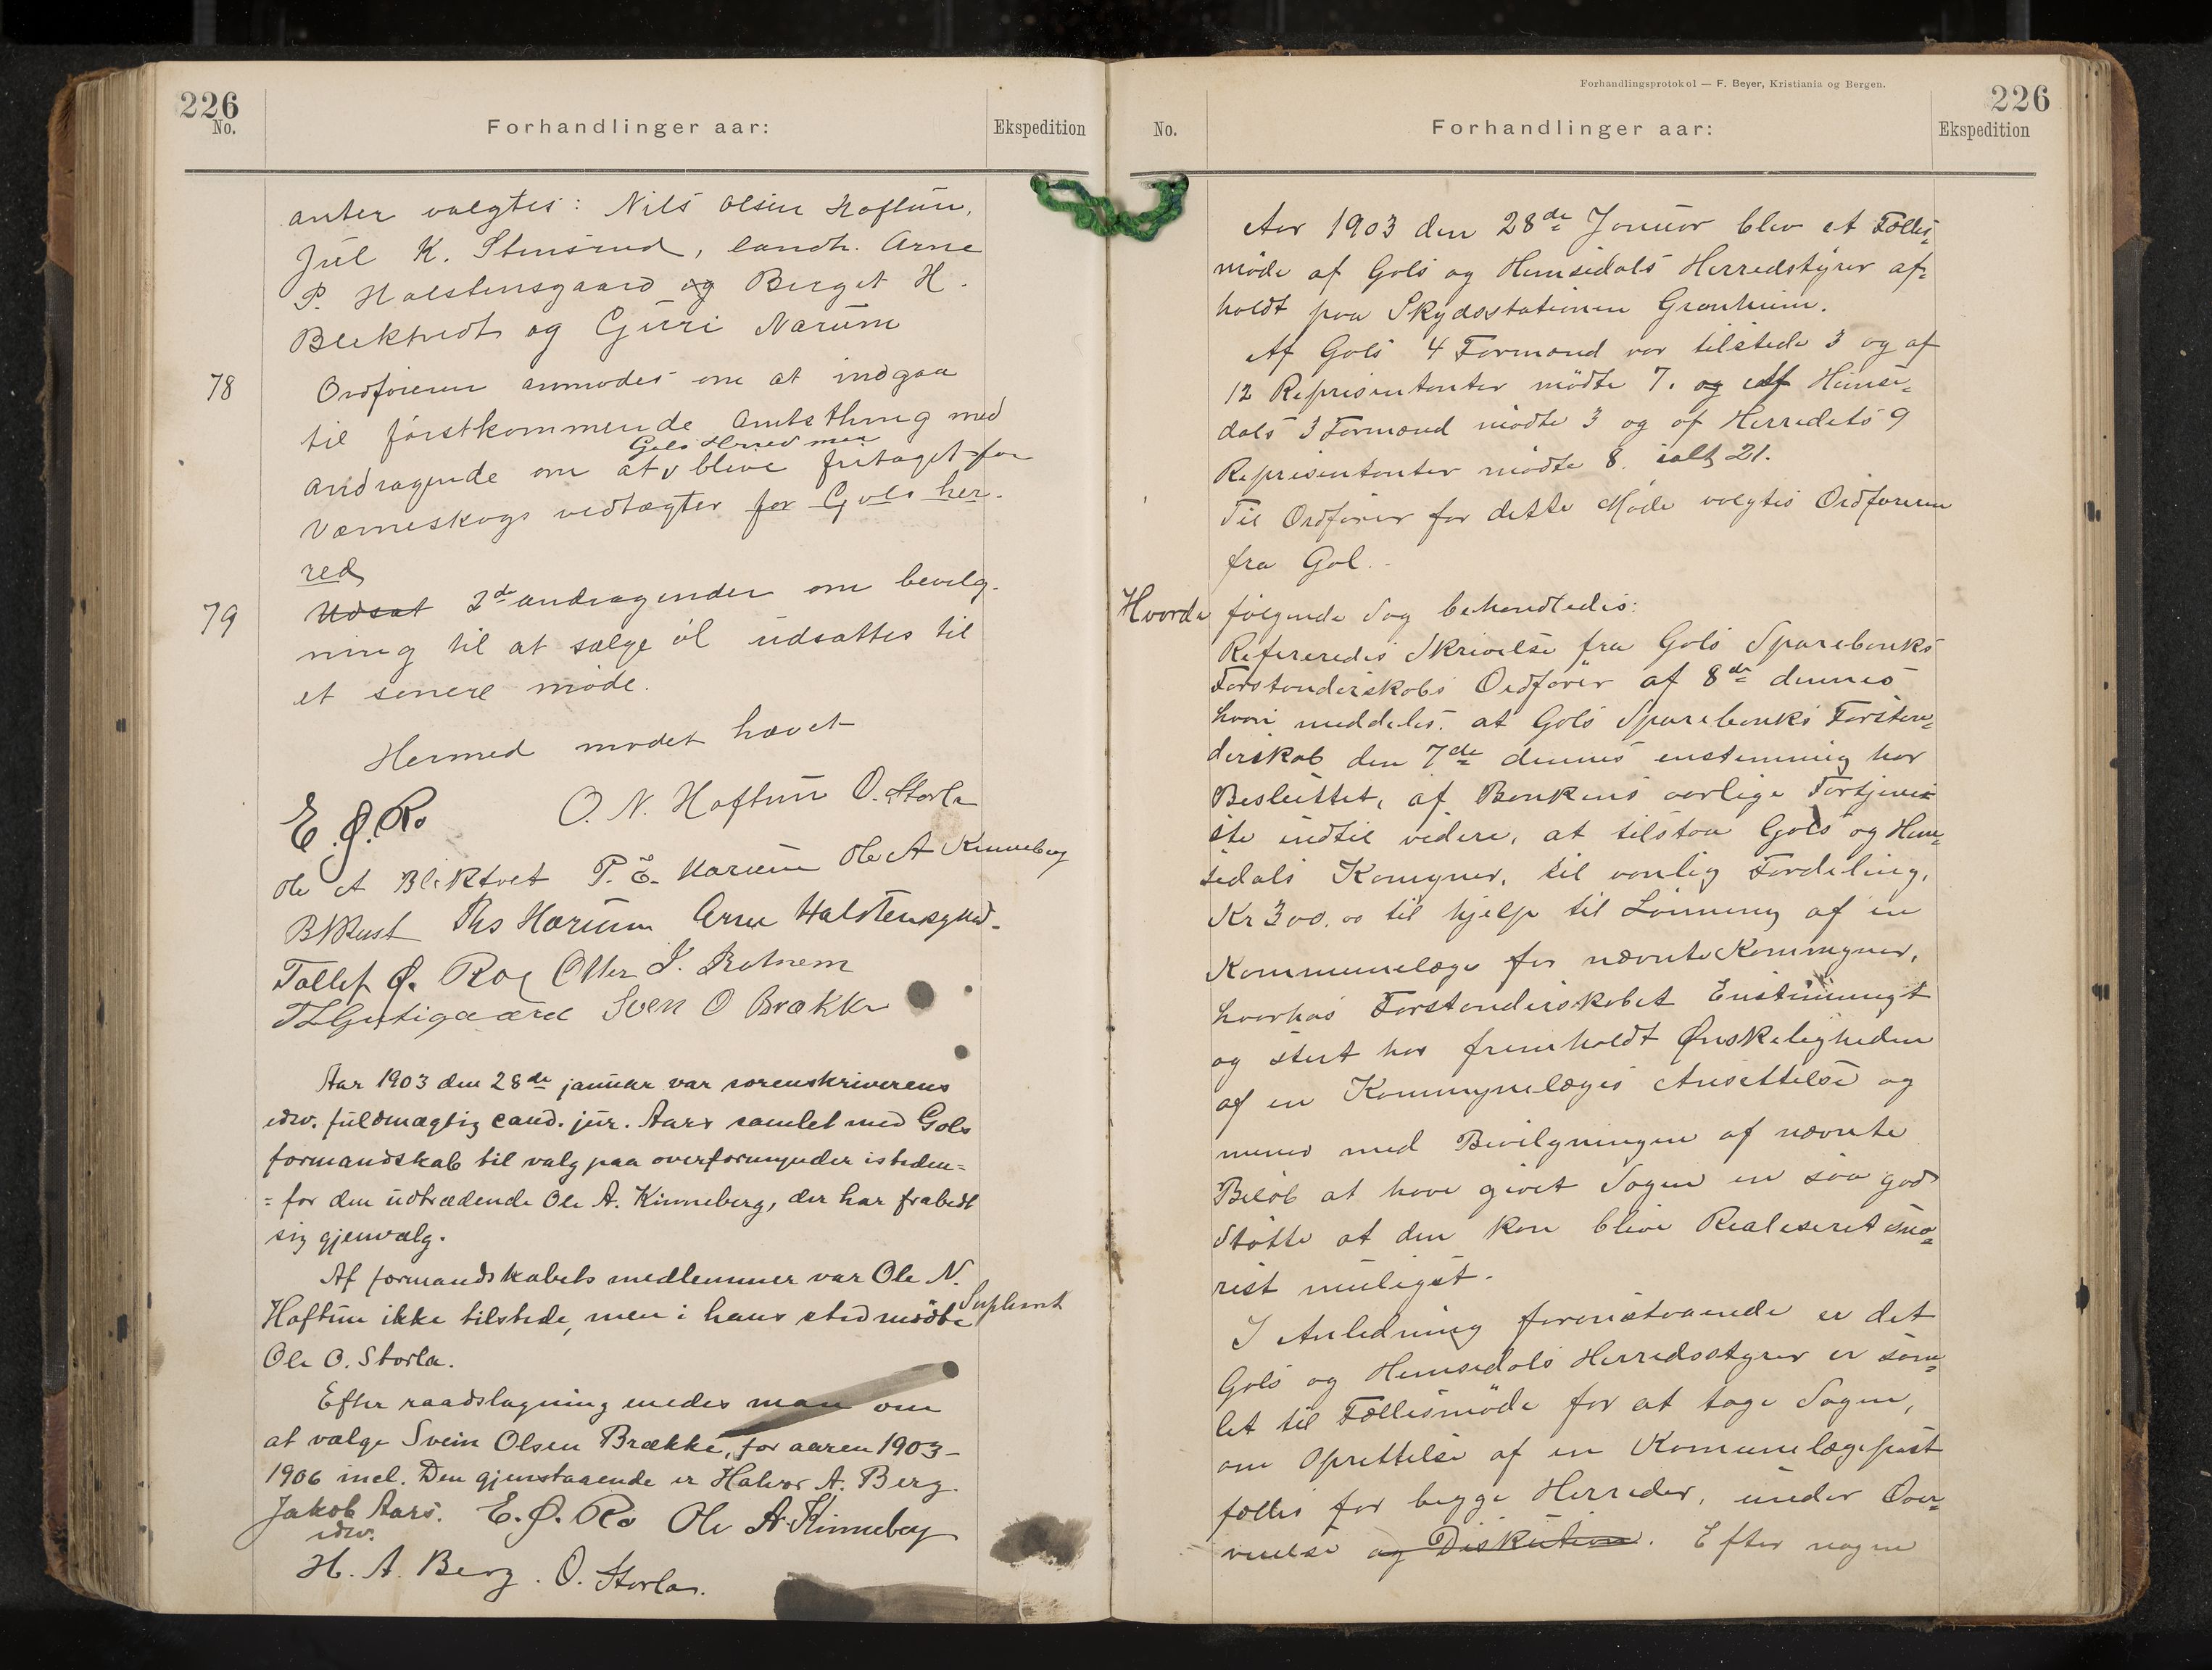 226
No.
Forhandlinger aar:
Ekspedition
anter valgtes: Nils Olsen Hoftun,
Jul K. Stensrud, landh. Arne
P. Halstensgaard og Berget H.
Blektvedt og Guri Narum
78
Ordføreren anmodes om at indgaa
til førstkommende Amtsthing med
Gols Herred maa
andragende om at blive fritaget for
Værneskogs vedtægter for Gols her-
red
79
Udsat 2de andragender om bevilg-
ning til at sælge øl udsattes til
et senere møde.
Hermed mødet hævet
E. Ø. Ro O. N. Hoftun O. Storla
Ole A Blektvet P. E. Narum Ole A Kinneberg
B N Rust Ths Narum Arne Halstensgaard.
Tollef Ø. Roe Otter J. Rotnem
Sven O Brække
Aar 1903 den 28de januar var sorenskriverens
edsv. fuldmægtig cand. jur. Aars samlet med Gols
formandskab til valg paa overformynder isteden=
= for den udtrædende Ole A. Kinneberg, der har frabedt
sig gjenvalg.
Af formandskabets medlemmer var Ole N.
Hoftun ikke tilstede, men i hans sted mødte Suplient
Ole O. Storla.
Efter raadslagning enedes man om
at vælge Svein Olsen Brække, for aaren 1903-
1906 incl. Den gjenstaaende er Halvor A. Berg.
Jakob Aars. E. Ø. Ro Ole A. Kinneberg
edsv.
H. A. Berg. O. Storla.
Forhandlingsprotokol — F. Beyer, Kristiania og Bergen.
226
No.
Forhandlinger aar:
Ekspedition
Aar 1903 den 28de Januar blev et Fælles=
møde af Gols og Hemsedals Herredstyrer af=
holdt paa Skydsstationen Granheim.
Af Gols 4 Formænd var tilstede 3 og af
12 Repræsentanter mødte 7. og af Hemse=
dals 3 Formænd mødte 3 og af Herredets 9
Repræsentanter mødte 8. ialt 21.
Til Ordfører for dette Møde valgtes Ordføreren
fra Gol.
Hvorda følgende Sag behandledes:
Refereredes Skrivelse fra Gols Sparebanks
Forstanderskabs Ordfører af 8de dennes
hvori meddeles. at Gols Sparebanks Forstan=
derskab den 7de dennes enstemmig har
Besluttet, af Bankens aarlige Fortjene=
ste indtil videre, at tilstaa Gols og Hem=
sedals Komyner, til vanlig Fordeling,
Kr 300.00 til hjelp til Lønning af en
Kommunelæge for nævnte Kommyner,
hvorhos Forstanderskabet Enstimmigt
og stert har fremholdt Ønskeligheden
af en Kommynelæges Ansettelse og
mener med Bevilgningen af nævnte
Beløb at have givet Sagen en saa god
Støtte at den kan blive Realiseret sna=
rest muligst.
I Anledning foranstaaende er det
Gols og Hemsedals Herredsstyrer er sam=
let til Fællesmøde for at tage Sagen,
om Oprettelse af en Komunelægepost
fælles for begge Herreder, under Over=
veielse og Diskution. Efter nogen